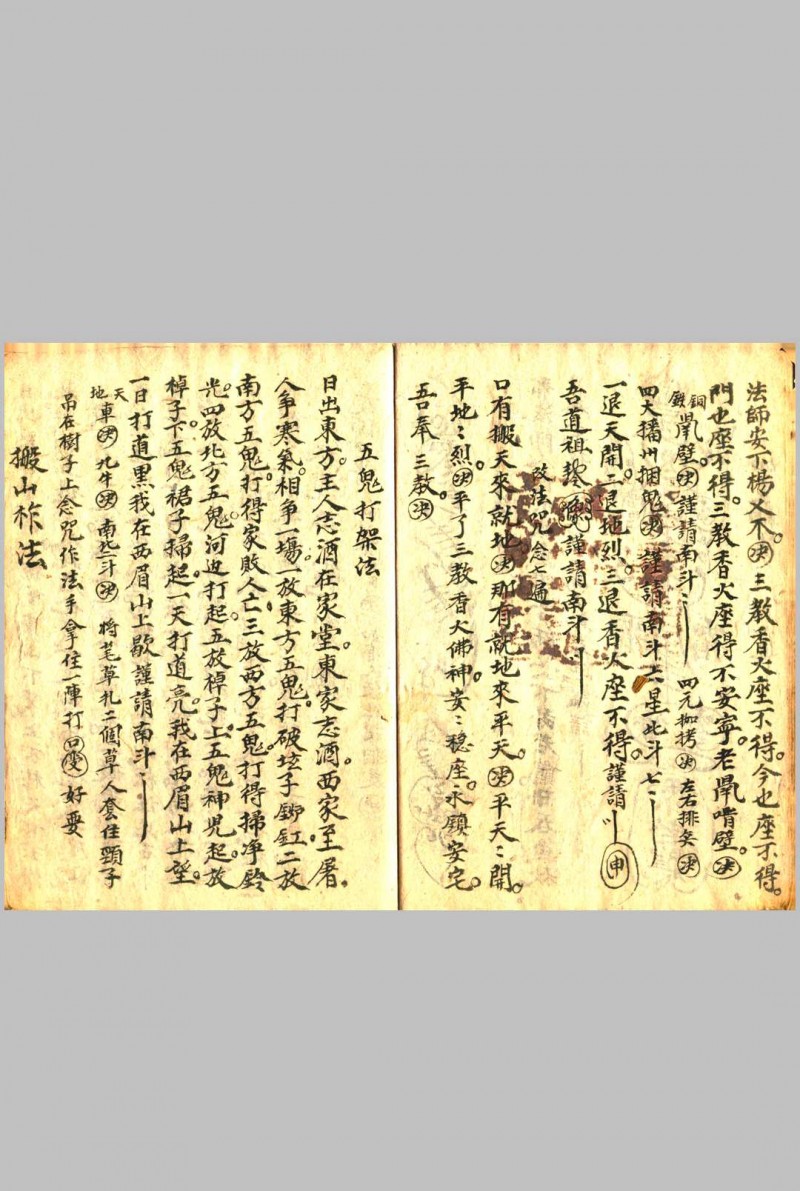 法師安下楊义不。㊋三教香火座不得。今也座不得。
門也座不得。三教香火座得不安寧。老鼠啃壁。決
銅鉄鼠壁決謹請南斗〻 四元枷拷決左右排矣決
四大播州捆鬼決謹請南斗六星北斗七〻
一退天開二退地烈。三退香火座不得。謹請 申
吾道祖 謹請南斗〻
改法咒念七遍
口有搬天來就地決那有就地來平天。決平天〻開。
平地〻烈。決平了三教香火佛神安〻穩座。永鎮安宅。
吾奉三教。決
五鬼打架法
日出東方。主人志酒在家堂。東家志酒。西家至屠。
人争寒氣。相争一塲。一放東方五鬼。打破坛子鉚缸。二放
南方五鬼。打得家敗人亡。三放西方五鬼。打得掃净鈴
光。四放北方五鬼。河边打起。五放棹子上。五鬼神児起。放
棹子下五鬼裙子掃起。一天打道亮。我在西眉山上望。
一日打道黑我在西眉山上歇謹請南斗〻
天地車決九牛決南北二斗決 将茅草札二個草人套住頸子
吊在樹子上念咒作法手拿住一陣打 好耍
搬山柞法